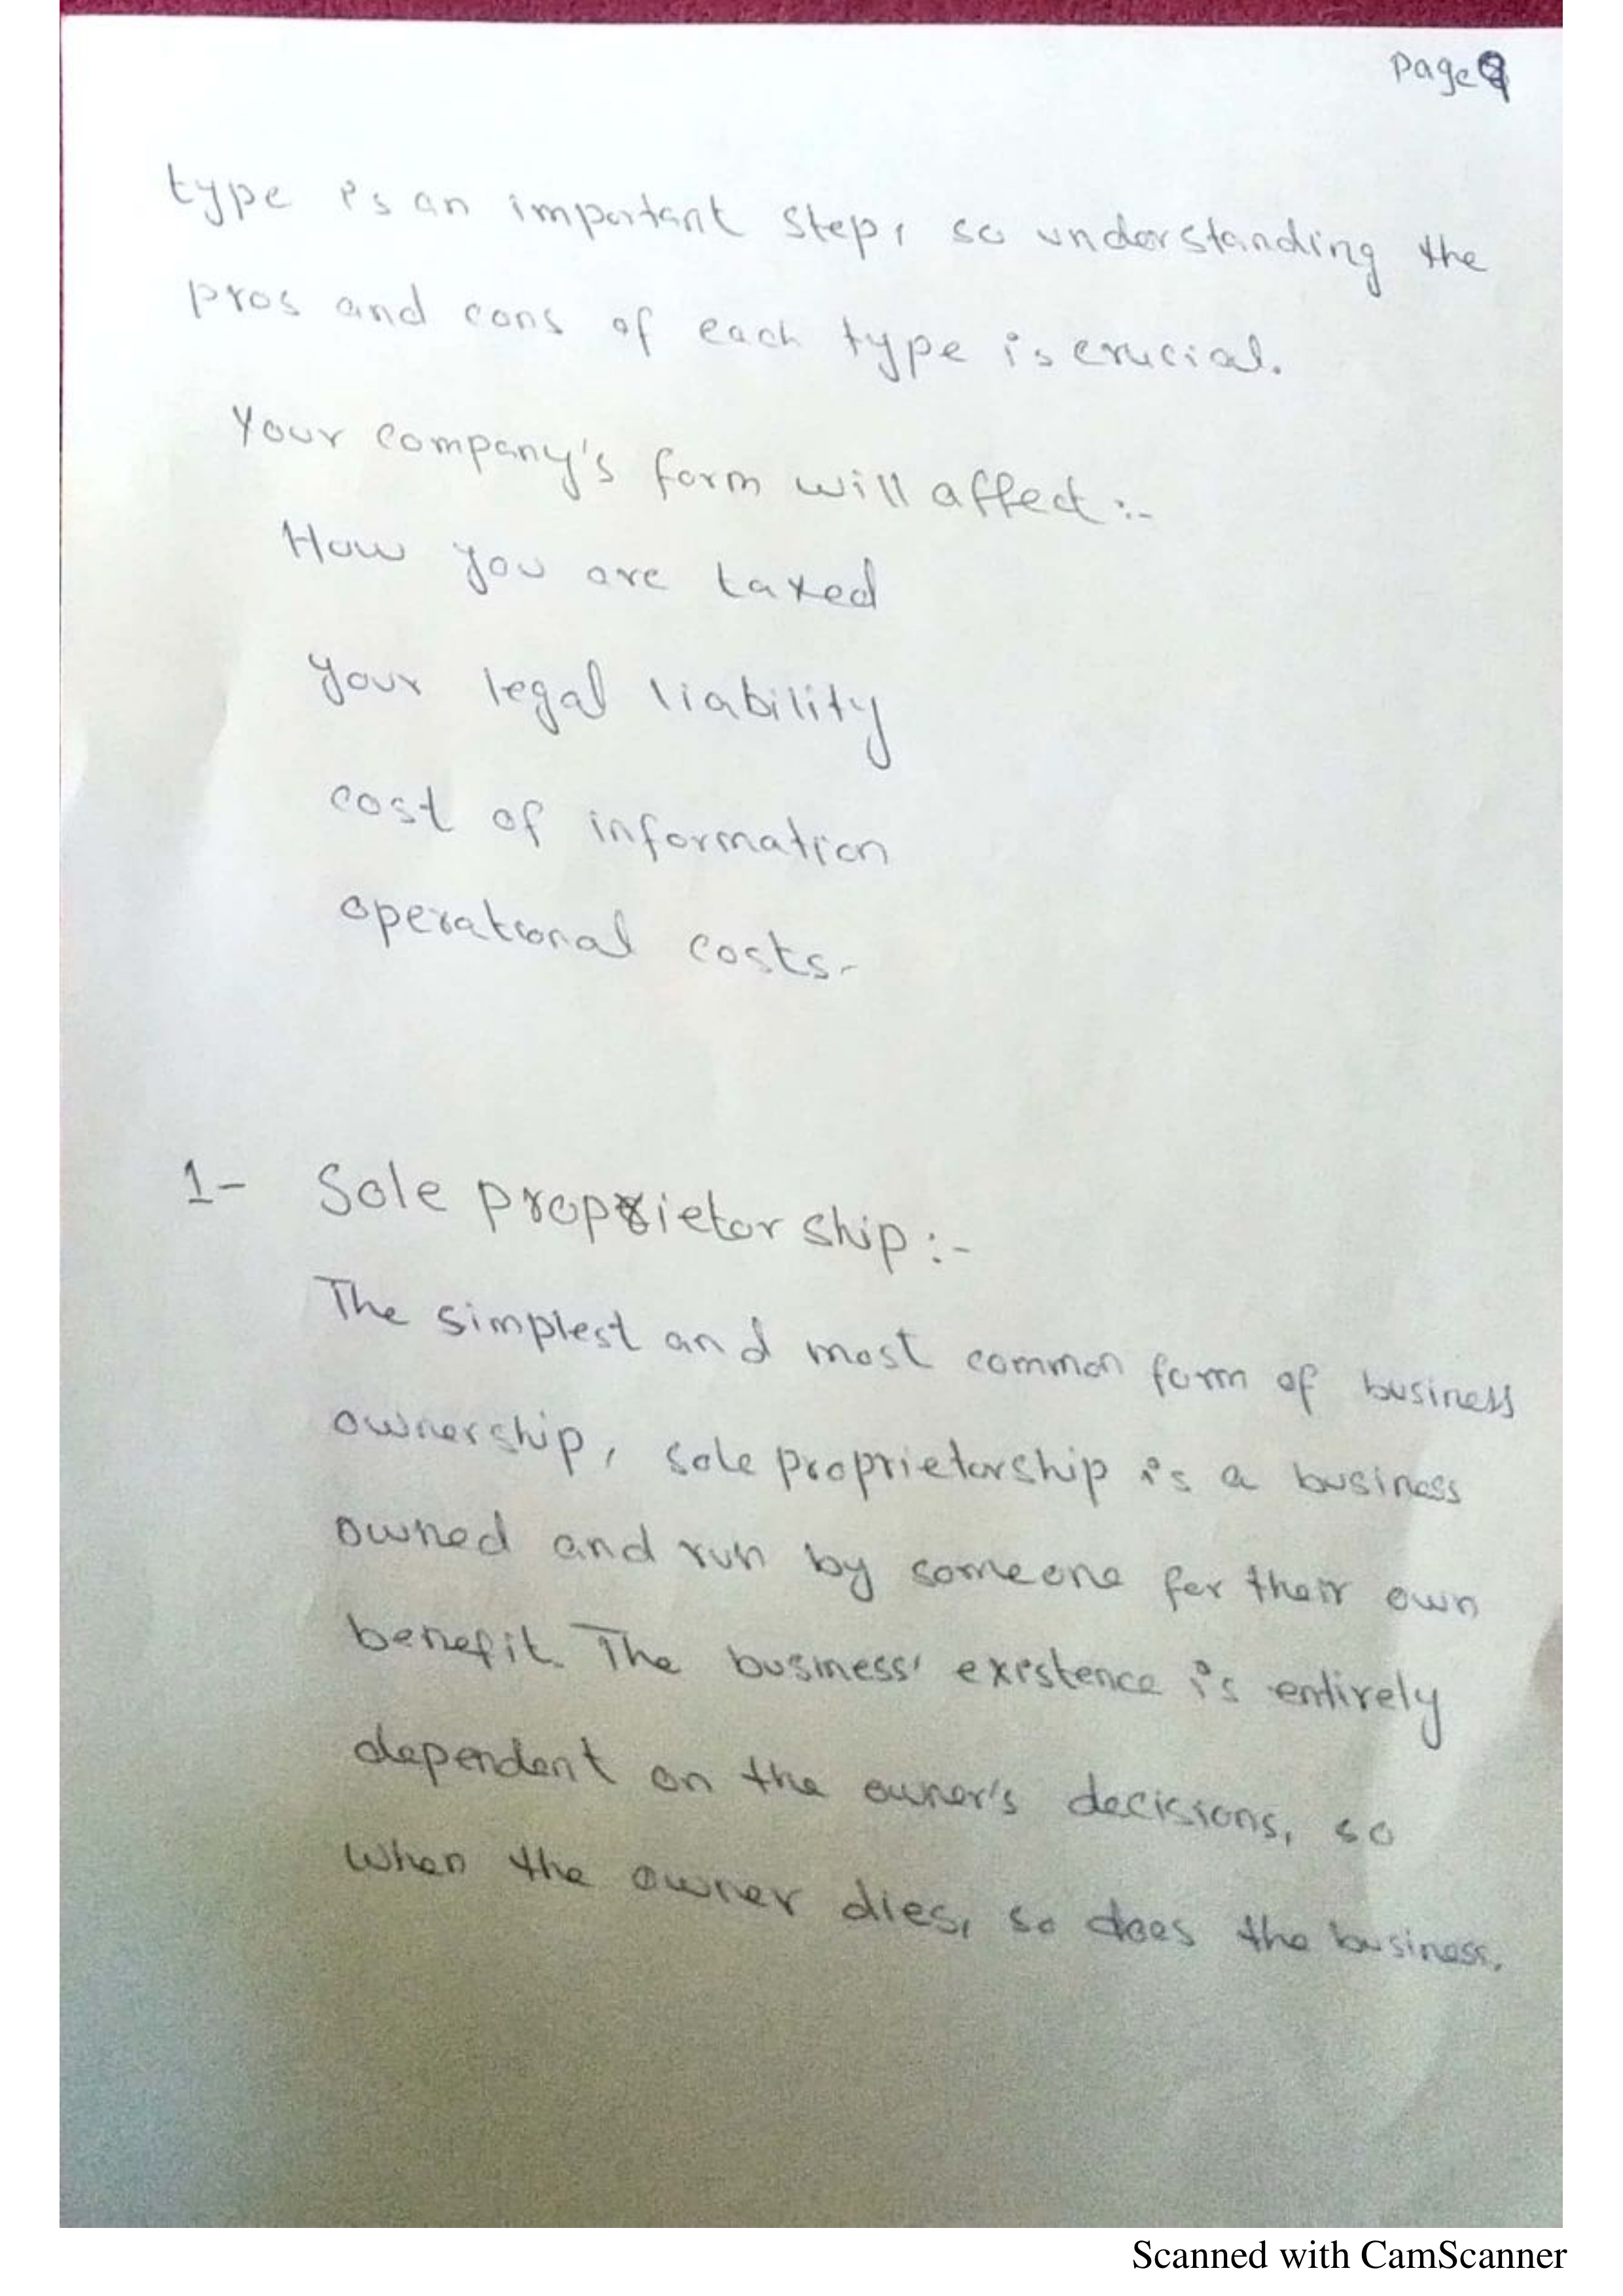 Page 9
type is an important step, so understanding the
pros and cons of each type is crucial.
Your company's form will affect :-
How you are taxed
your legal liability
cost of information
operational costs.
1- Sole proprietorship :-
The simplest and most common form of business
ownership, sole proprietorship is a business
owned and run by someone for their own
benefit. The business' existence is entirely
dependent on the owner's decisions, so
when the owner dies, so does the business.
Scanned with CamScanner